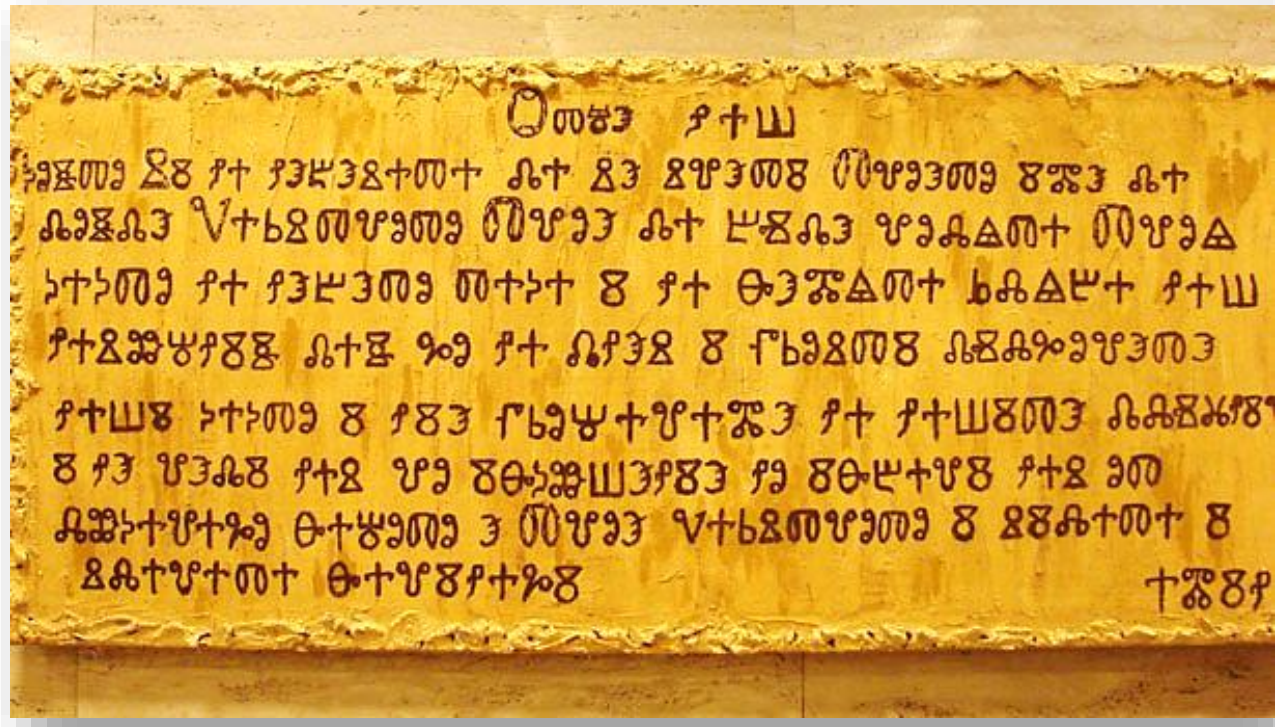 Ⱁⱅⱍⰵ ⱀⰰⱎ
ⰽⱁⰹⱅⱁ ⱄⰻ ⱀⰰ ⱀⰵⰱⰵⱄⰰⱅⰰ ⰴⰰ ⱄⰵ ⱄⰲⰵⱅⰻ Ⱅⰲⱁⰵⱅⱁ ⰻⰿⰵ ⰴⰰ
ⰴⱁⰹⰴⰵ Ⱌⰰⱃⱄⱅⰲⱁⱅⱁ Ⱅⰲⱁⰵ ⰴⰰ ⰱⱏⰴⰵ ⰲⱁⰾⱑⱅⰰ Ⱅⰲⱁⱑ
ⰽⰰⰽⱅⱁ ⱀⰰ ⱀⰵⰱⰵⱅⱁ ⱅⰰⰽⰰ ⰻ ⱀⰰ ⰸⰵⰿⱑⱅⰰ ⱈⰾⱑⰱⰰ ⱀⰰⱎ
ⱀⰰⱄⱆⱋⱀⰻⰹ ⰴⰰⰹ ⰳⱁ ⱀⰰ ⰴⱀⰵⱄ ⰻ ⱂⱃⱁⱄⱅⰻ ⰴⱏⰾⰳⱁⰲⰵⱅⰵ
ⱀⰰⱎⰻ ⰽⰰⰽⱅⱁ ⰻ ⱀⰻⰵ ⱂⱃⱁⱋⰰⰲⰰⰿⰵ ⱀⰰ ⱀⰰⱎⰻⱅⰵ
ⰻ ⱀⰵ ⰲⰵⰴⰻ ⱀⰰⱄ ⰲⱁ ⰻⰸⰽⱆⱎⰵⱀⰻⰵ ⱀⱁ ⰻⰸⰱⰰⰲⰻ ⱀⰰⱄ ⱁⱅ
ⰾⱆⰽⰰⰲⰰⰳⱁ ⰸⰰⱋⱁⱅⱁ ⰵ Ⱅⰲⱁⰵ Ⱌⰰⱃⱄⱅⰲⱁⱅⱁ ⰻ ⱄⰻⰾⰰⱅⰰ ⰻ
ⱄⰾⰰⰲⰰⱅⰰ ⰸⰰⰲⰻⱀⰰⰳⰻ ⰰⰿⰻⱀ